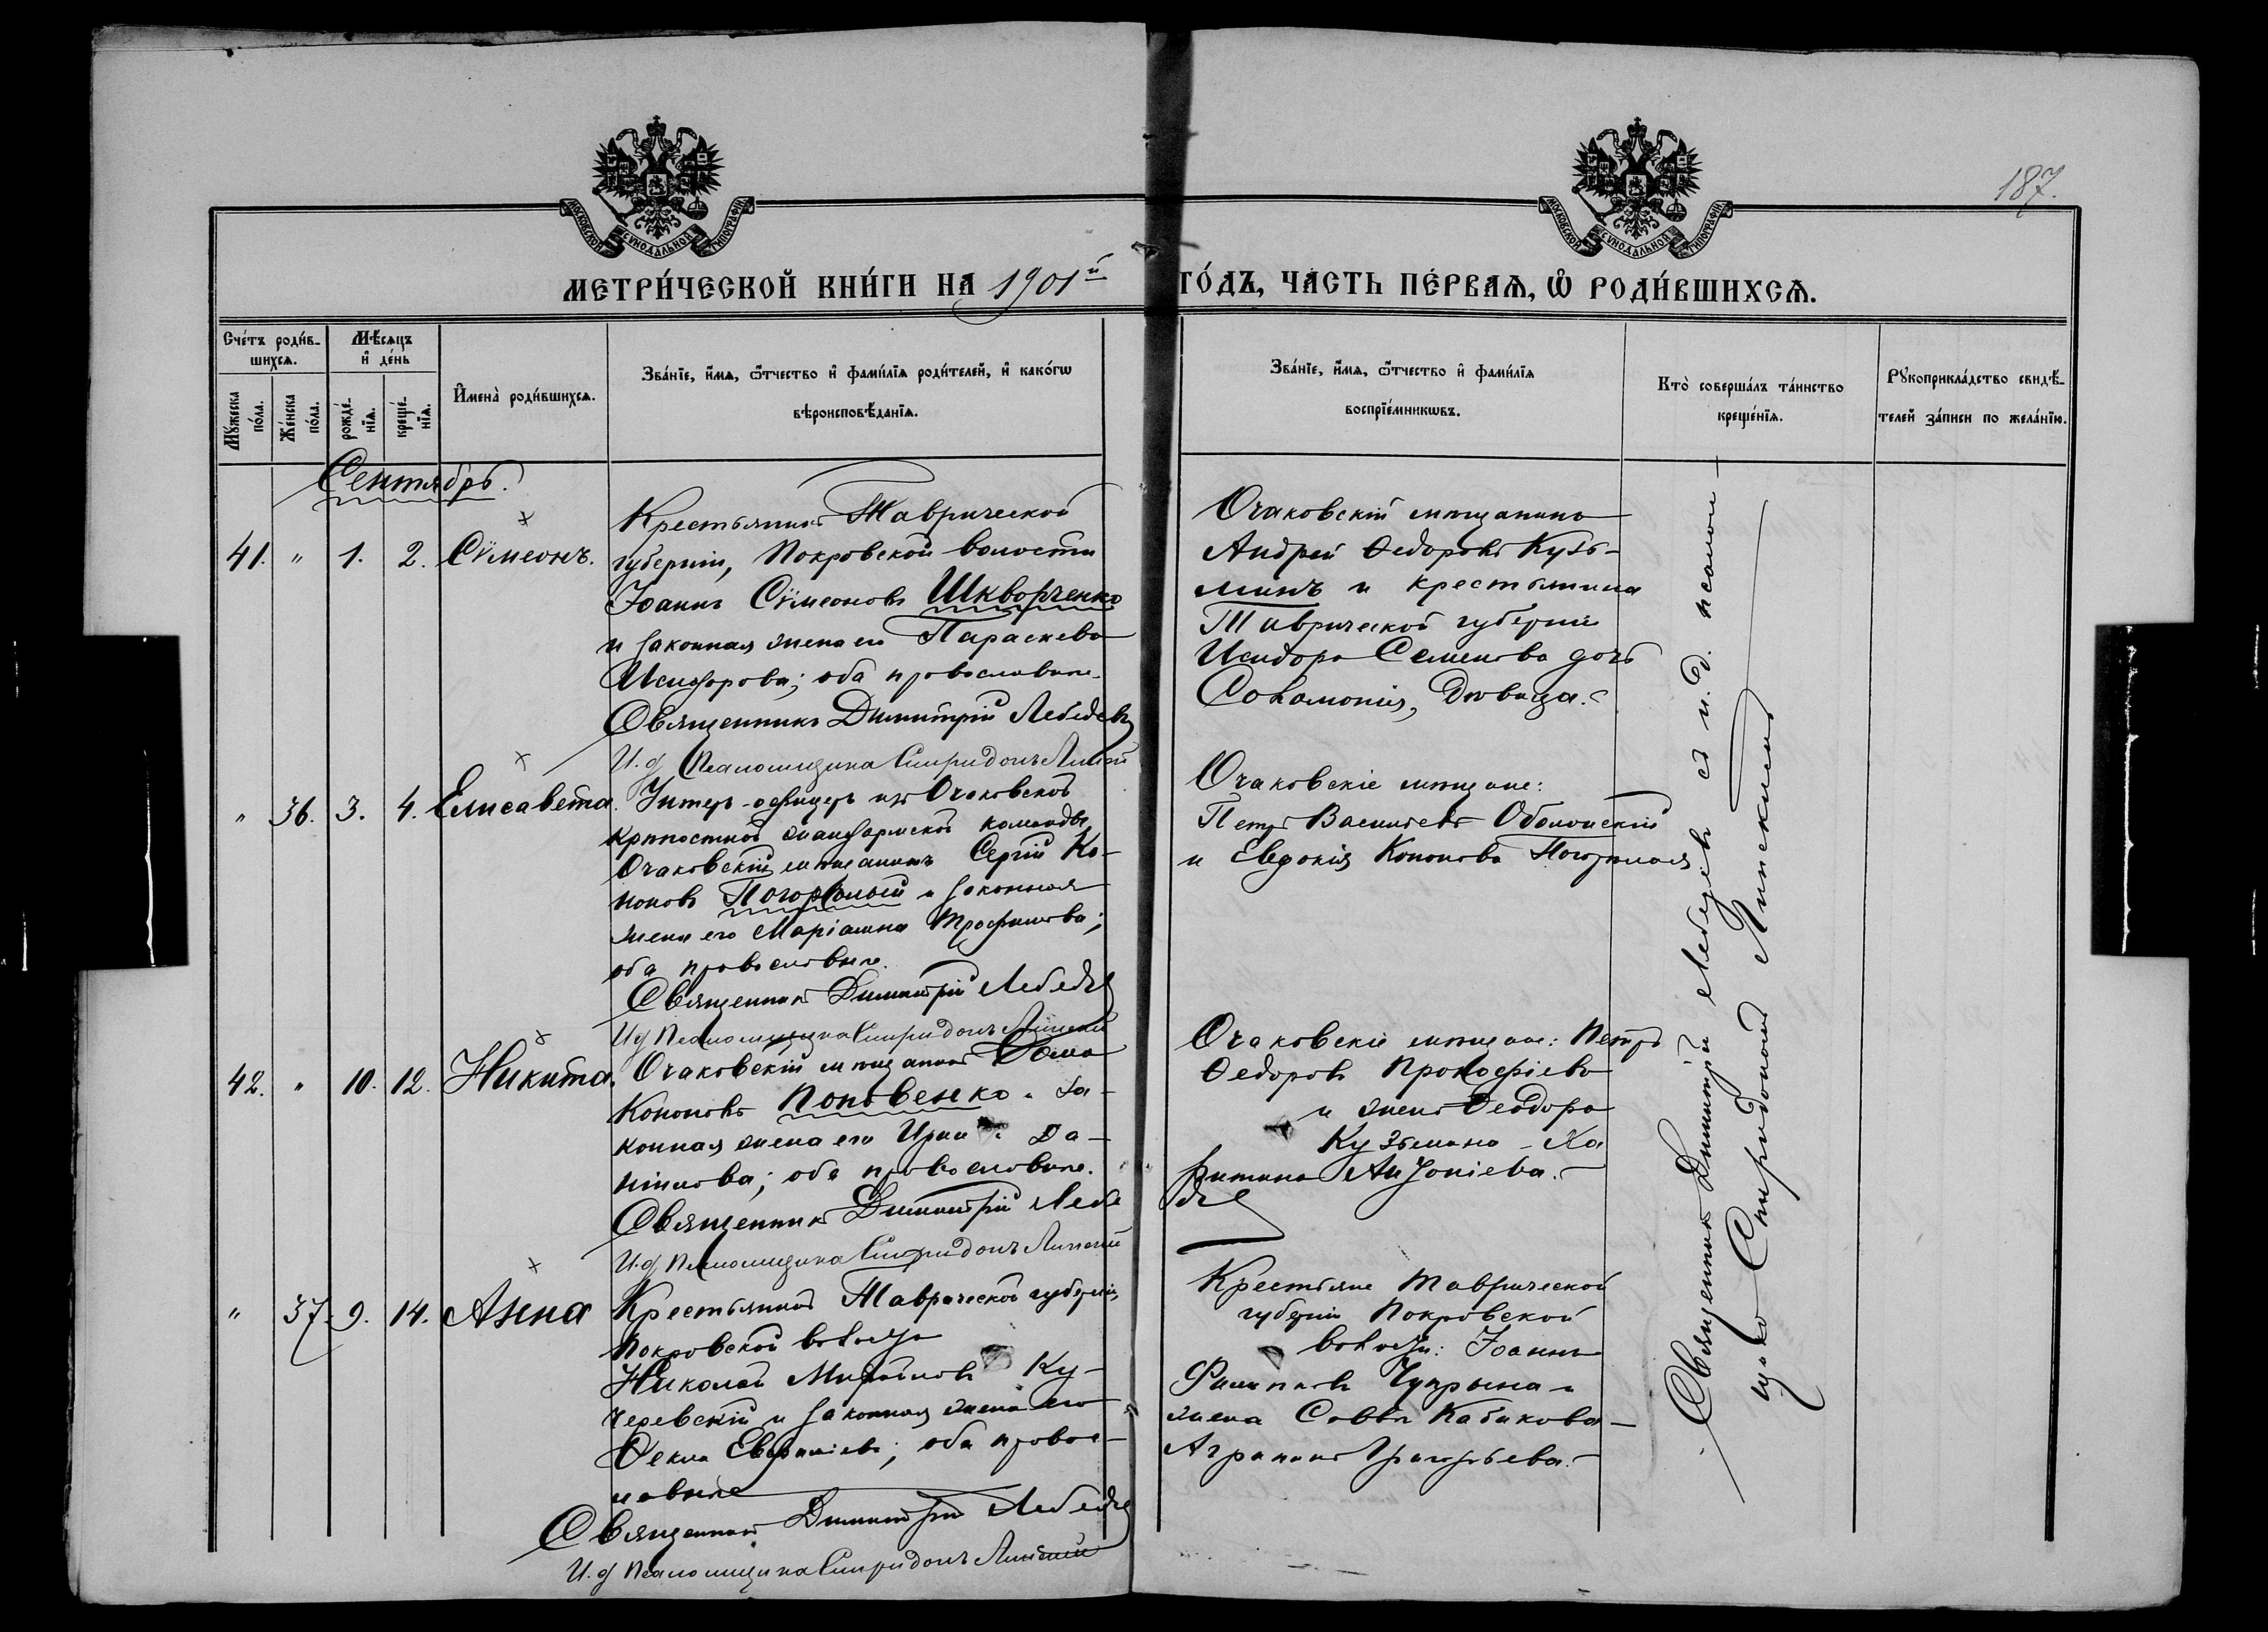 187.
МОСКОВСКОЙ СѴНОДАЛЬНОЙ ТИПОГРАФІИ
МОСКОВСКОЙ СѴНОДАЛЬНОЙ ТИПОГРАФІИ
МЕТРИ́ЧЕСКОЙ КНИ́ГИ НА 1901й ГО́ДЪ, ЧА́СТЬ ПЕ́РВАѦ, Ѡ РОДИ́ВШИХСѦ.
Сче́тъ роди́в-
шихсѧ.
Мѣ́сѧцъ
и҆ де́нь
Мꙋ́жеска
по́ла.
Же́нска
по́ла.
рожде́-
нїѧ.
креще́-
нїѧ.
И҆мена̀ роди́вшихсѧ.
Зва́нїе, и҆́мѧ, ѻ҆́тчество и҆ фами́лїѧ роди́телей, и҆ како́гѡ
вѣроисповѣ́данїѧ.
Зва́нїе, и҆́мѧ, ѻ҆́тчество и҆ фами́лїѧ
воспрїе́мникѡвъ.
Кто̀ соверша́лъ та́инство
креще́нїѧ.
Рꙋкоприкла́дство свидѣ́-
телей за́писи по жела́нїю.
Сентябрь.
41. " 1. 2. Сѵмеонъ.
Крестьянинъ Таврической
губерніи, Покровской волости
Іоаннъ Сѵмеоновъ Шкворченко
и законная жена его Параскева
Исидорова; оба православные.
Священникъ Димитрій Лебедевъ
И. д. Псаломщика Спиридонъ Липскій
Очаковскій мѣщанинъ
Андрей Ѳедоровъ Кузь-
минъ и крестьянина
Таврической губерніи
Исидора Семенова дочь
Соломонія, дѣвица.
" 36. 3. 4. Елисавета.
Унтеръ-офицеръ изъ Очаковской
крѣпостной жандармской команды,
Очаковскій мѣщанинъ Сергій Ко-
ноновъ Погорѣлый и законная
жена его Маріамна Трофимова;
оба православные.
Священникъ Димитрій Лебедевъ
И д Псаломщика Спиридонъ Липскій
Очаковскіе мѣщане:
Петръ Васильевъ Оболонскій
и Евдокія Кононова Погорѣлая
42. " 10. 12. Никита.
Очаковскій мѣщанинъ Ѳома
Кононовъ Поповенко и за-
конная жена его Ирина Да-
ніилова; оба православные.
Священникъ Димитрій Лебедевъ
И. д. Псаломщика Спиридонъ Липскій
Очаковскіе мѣщане: Петръ
Ѳедоровъ Прокофіевъ
и жена Ѳеодора
Кузьмина - Ха
ритина Антоніева.
" 37. 9. 14. Анна
Крестьянинъ Таврической губерніи,
Покровской волости
Николай Михайловъ Ку-
черевскій и законная жена его
Ѳекла Евфиміева; оба правос-
лавные
Священникъ Димитрій Лебедевъ
И. д. Псаломщика Спиридонъ Липскій
Крестьяне Таврической
губерніи Покровской
волости: Іоаннъ
Филипповъ Чупрына и
жена Саввы Кабакова
Агрипина Григорьева.
Священникъ Димитрій Лебедевъ съ и. д. псалом-
щика Спиридономъ Липскимъ